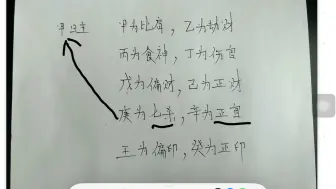 甲日主 甲为比肩，乙为劫财
丙为食神，丁为伤官
戊为偏财，己为正财
庚为七杀，辛为正官
壬为偏印，癸为正印